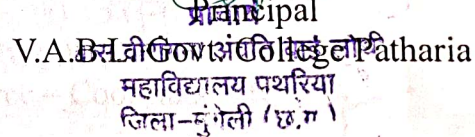 प्राचार्य
Principal
V.A.B.L. Govt. College Patharia
महाविद्यालय पथरिया
जिला-मुंगेली (छ.ग)